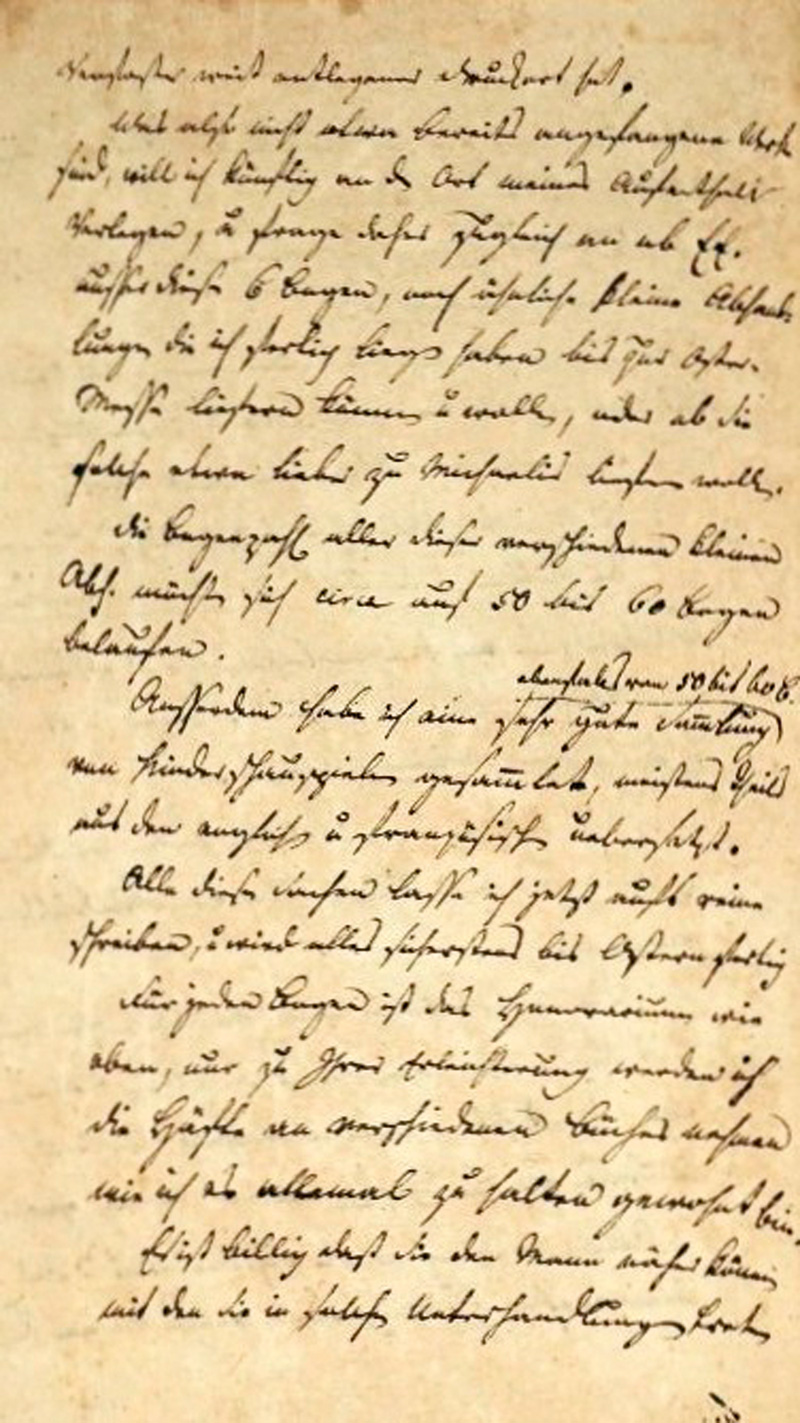 Verfasser weit entlegenen Druckort hat.
Was also nicht etwa bereits angefangene Werke
sind, will ich künftig an de Ort meines Aufenthalts
Verlegen, u frage daher zugleich an ob Ew.
ausser diese 6 Bogen, noch ähnliche kleine Abhand-
lungen die ich fertig liegen haben bis zur Oster-
Messe liefern können u wollen, oder ob sie
solche etwa lieber zu Michaelis liefern wollen.
die Bogenzahl aller dieser verschiedenen kleinen
Abh. möchte sich circa auf 50 bis 60 Bogen
belaufen.
ebenfals von 50 bis 60 B.
Ausserdem habe ich eine sehr gute Sammlung
von Kinderschauspielen gesammlet, meistens theils
aus den englischen u französischen uebersetzt.
Alle diese Sachen lasse ich jetzt aufs reine
schreiben, u wird alles sicherstens bis Ostern fertig
Für jeden Bogen ist das Honorarium wie
oben, nur zu Ihrer Erleichterung werden ich
die Hälfte an verschiedenen Bücher nehmen
wie ich es allemal zu halten gewohnt bin.
Es ist billig dass sie den Mann näher kennen
mit den sie in solche Unterhandlungen treten